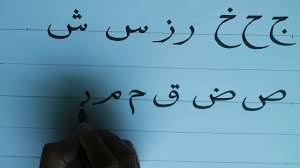 ج ح خ ر ز س ش
ص ض ق م مر